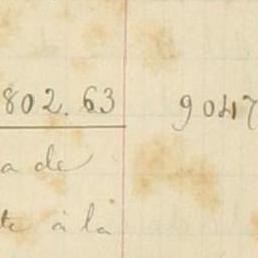 802.63 9047
a de
te à la